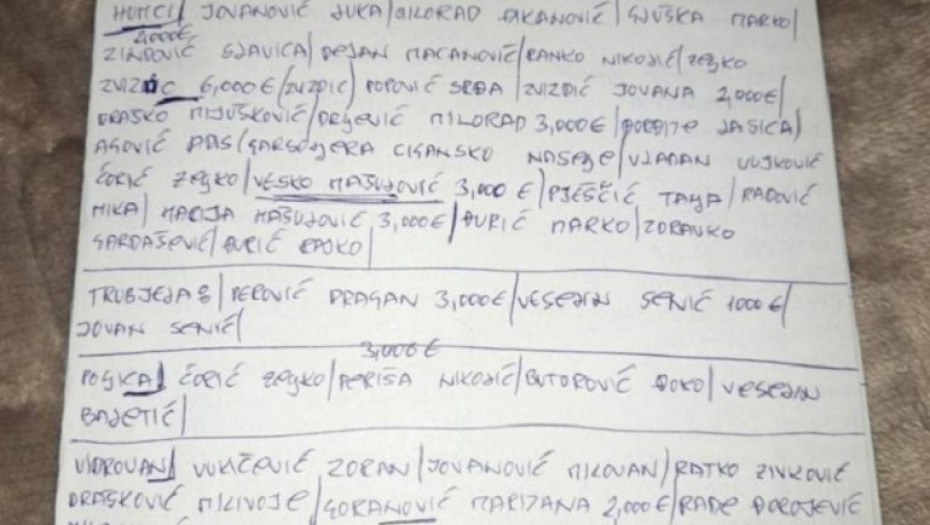 HUMCI/ JOVANOVIĆ JUKA/MILORAD ĐIKANOVIĆ/GJUŠKA MARKO/
2,000€
ZINDOVIĆ SJAVICA/DEJAN MACANOVIĆ/RANKO NIKOJIĆ/ZEJKO
ZVIZDIĆ 6,000€/ZVIZDIĆ/ POPOVIĆ SRĐA/ZVIZDIĆ JOVANA 2,000€/
DRAŠKO MIJUŠKOVIĆ/DRJEVIĆ MILORAD 3,000€/ĐORĐIJE JAŠICA/
AGOVIĆ ADIS/GARSOJERA CIGANSKO NASEJE/VJADAN VUJKOVIĆ
ĆORIĆ ZEJKO/VESKO MAŠUJOVIĆ 3,000€/PJEŠČIĆ TAJA/RADOVIĆ
MIKA/MARIJA MAŠUJOVIĆ 3,000€/ĐURIĆ MARKO/ZDRAVKO
GARDAŠEVIĆ/ĐURIĆ RAJKO/
TRUBJEJA 8/PEROVIĆ DRAGAN 3,000€/VESEJIN SENIĆ 1000€/
JOVAN SENIĆ/
3,000€
POJICA/ ĆORIĆ ZEJKO/PERIŠA NIKOJIĆ/BUTOROVIĆ ĐOKO/VESEJIN
BAJETIĆ/
VIDROVAN/ VUKIČEVIĆ ZORAN/JOVANOVIĆ MILOVAN/RATKO ZIVKOVIĆ
DRAŠKOVIĆ MILIVOJE/GORANOVIĆ MARIJANA 2,000€/RADE ĐOROJEVIĆ